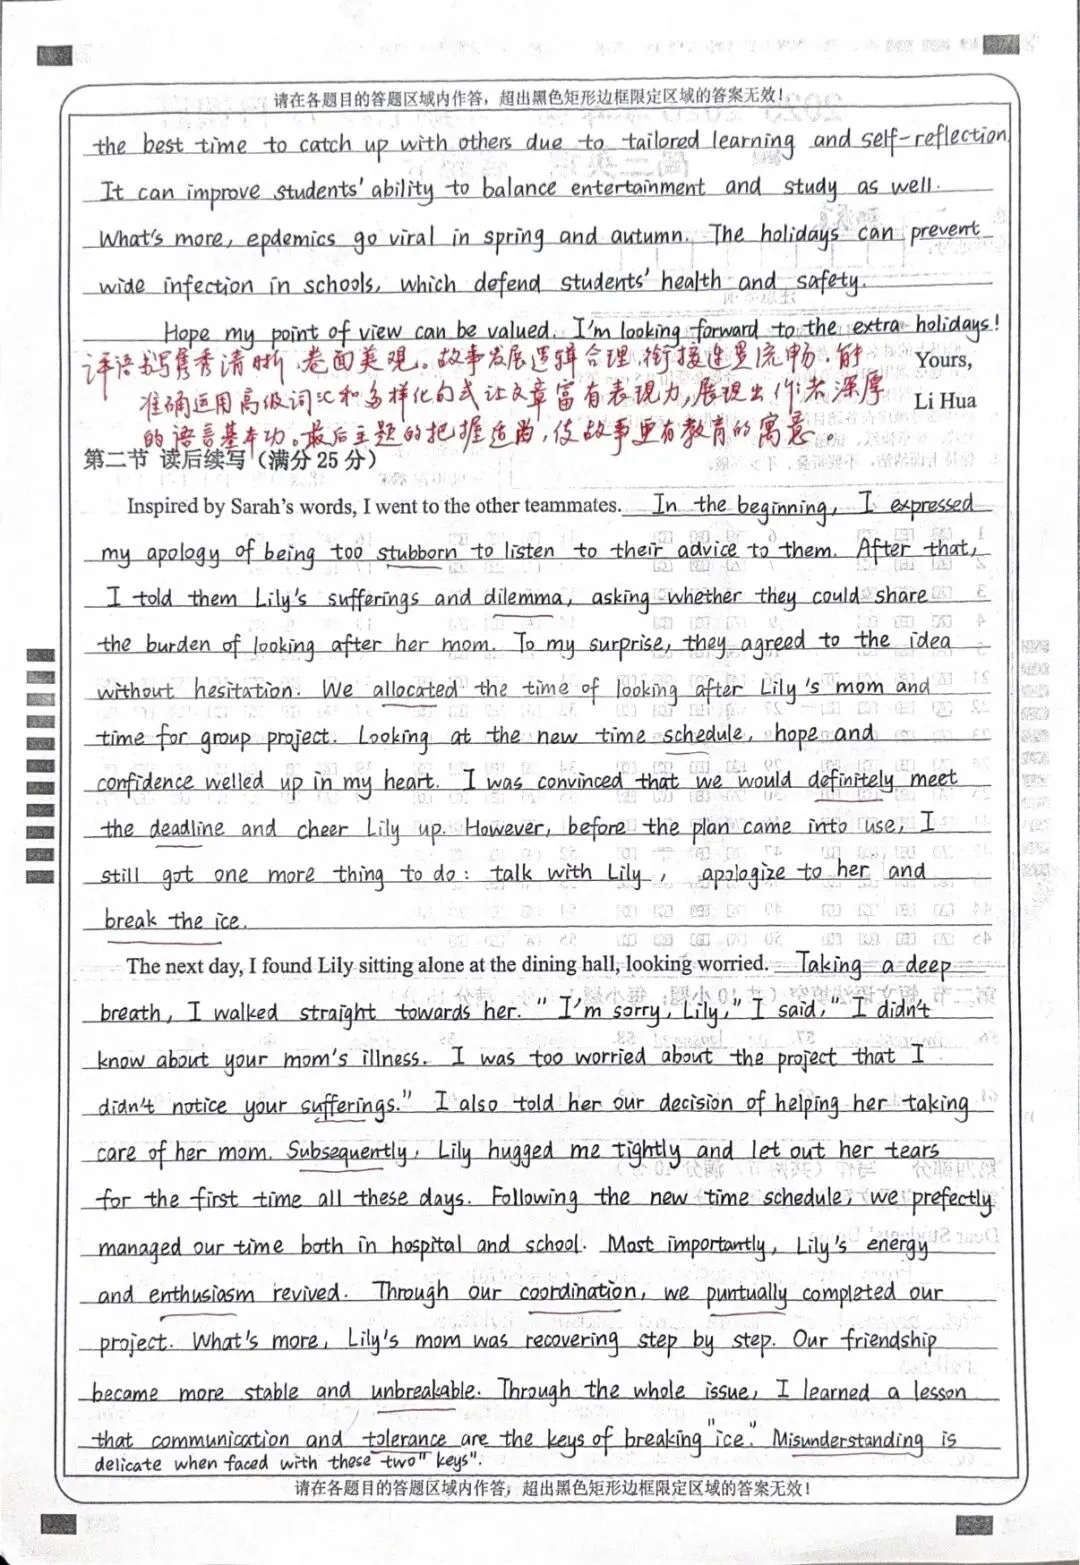 请在各题目的答题区域内作答，超出黑色矩形边框限定区域的答案无效！
the best time to catch up with others due to tailored learning and self-reflection
It can improve students' ability to balance entertainment and study as well.
What's more, epdemics go viral in spring and autumn. The holidays can prevent
wide infection in schools, which defend students' health and safety.
Hope my point of view can be valued. I'm looking forward to the extra holidays!
Yours,
Li Hua
评语:书写隽秀清晰,卷面美观。故事发展逻辑合理,衔接连贯流畅,能
准确运用高级词汇和多样化的式让文章富有表现力,展现出作者深厚
的语言基本功。最后主题的把握适当,使故事更有教育的寓意。
第二节 读后续写（满分 25 分）
Inspired by Sarah's words, I went to the other teammates. In the beginning, I expressed
my apology of being too stubborn to listen to their advice to them. After that,
I told them Lily's sufferings and dilemma, asking whether they could share
the burden of looking after her mom. To my surprise, they agreed to the idea
without hesitation. We allocated the time of looking after Lily's mom and
time for group project. Looking at the new time schedule, hope and
confidence welled up in my heart. I was convinced that we would definitely meet
the deadline and cheer Lily up. However, before the plan came into use, I
still got one more thing to do: talk with Lily, apologize to her and
break the ice.
The next day, I found Lily sitting alone at the dining hall, looking worried. Taking a deep
breath, I walked straight towards her. "I'm sorry, Lily," I said, "I didn't
know about your mom's illness. I was too worried about the project that I
didn't notice your sufferings." I also told her our decision of helping her taking
care of her mom. Subsequently, Lily hugged me tightly and let out her tears
for the first time all these days. Following the new time schedule, we prefectly
managed our time both in hospital and school. Most importantly, Lily's energy
and enthusiasm revived. Through our coordination, we puntually completed our
project. What's more, Lily's mom was recovering step by step. Our friendship
became more stable and unbreakable. Through the whole issue, I learned a lesson
that communication and tolerance are the keys of breaking "ice". Misunderstanding is
delicate when faced with these two "keys".
请在各题目的答题区域内作答，超出黑色矩形边框限定区域的答案无效！